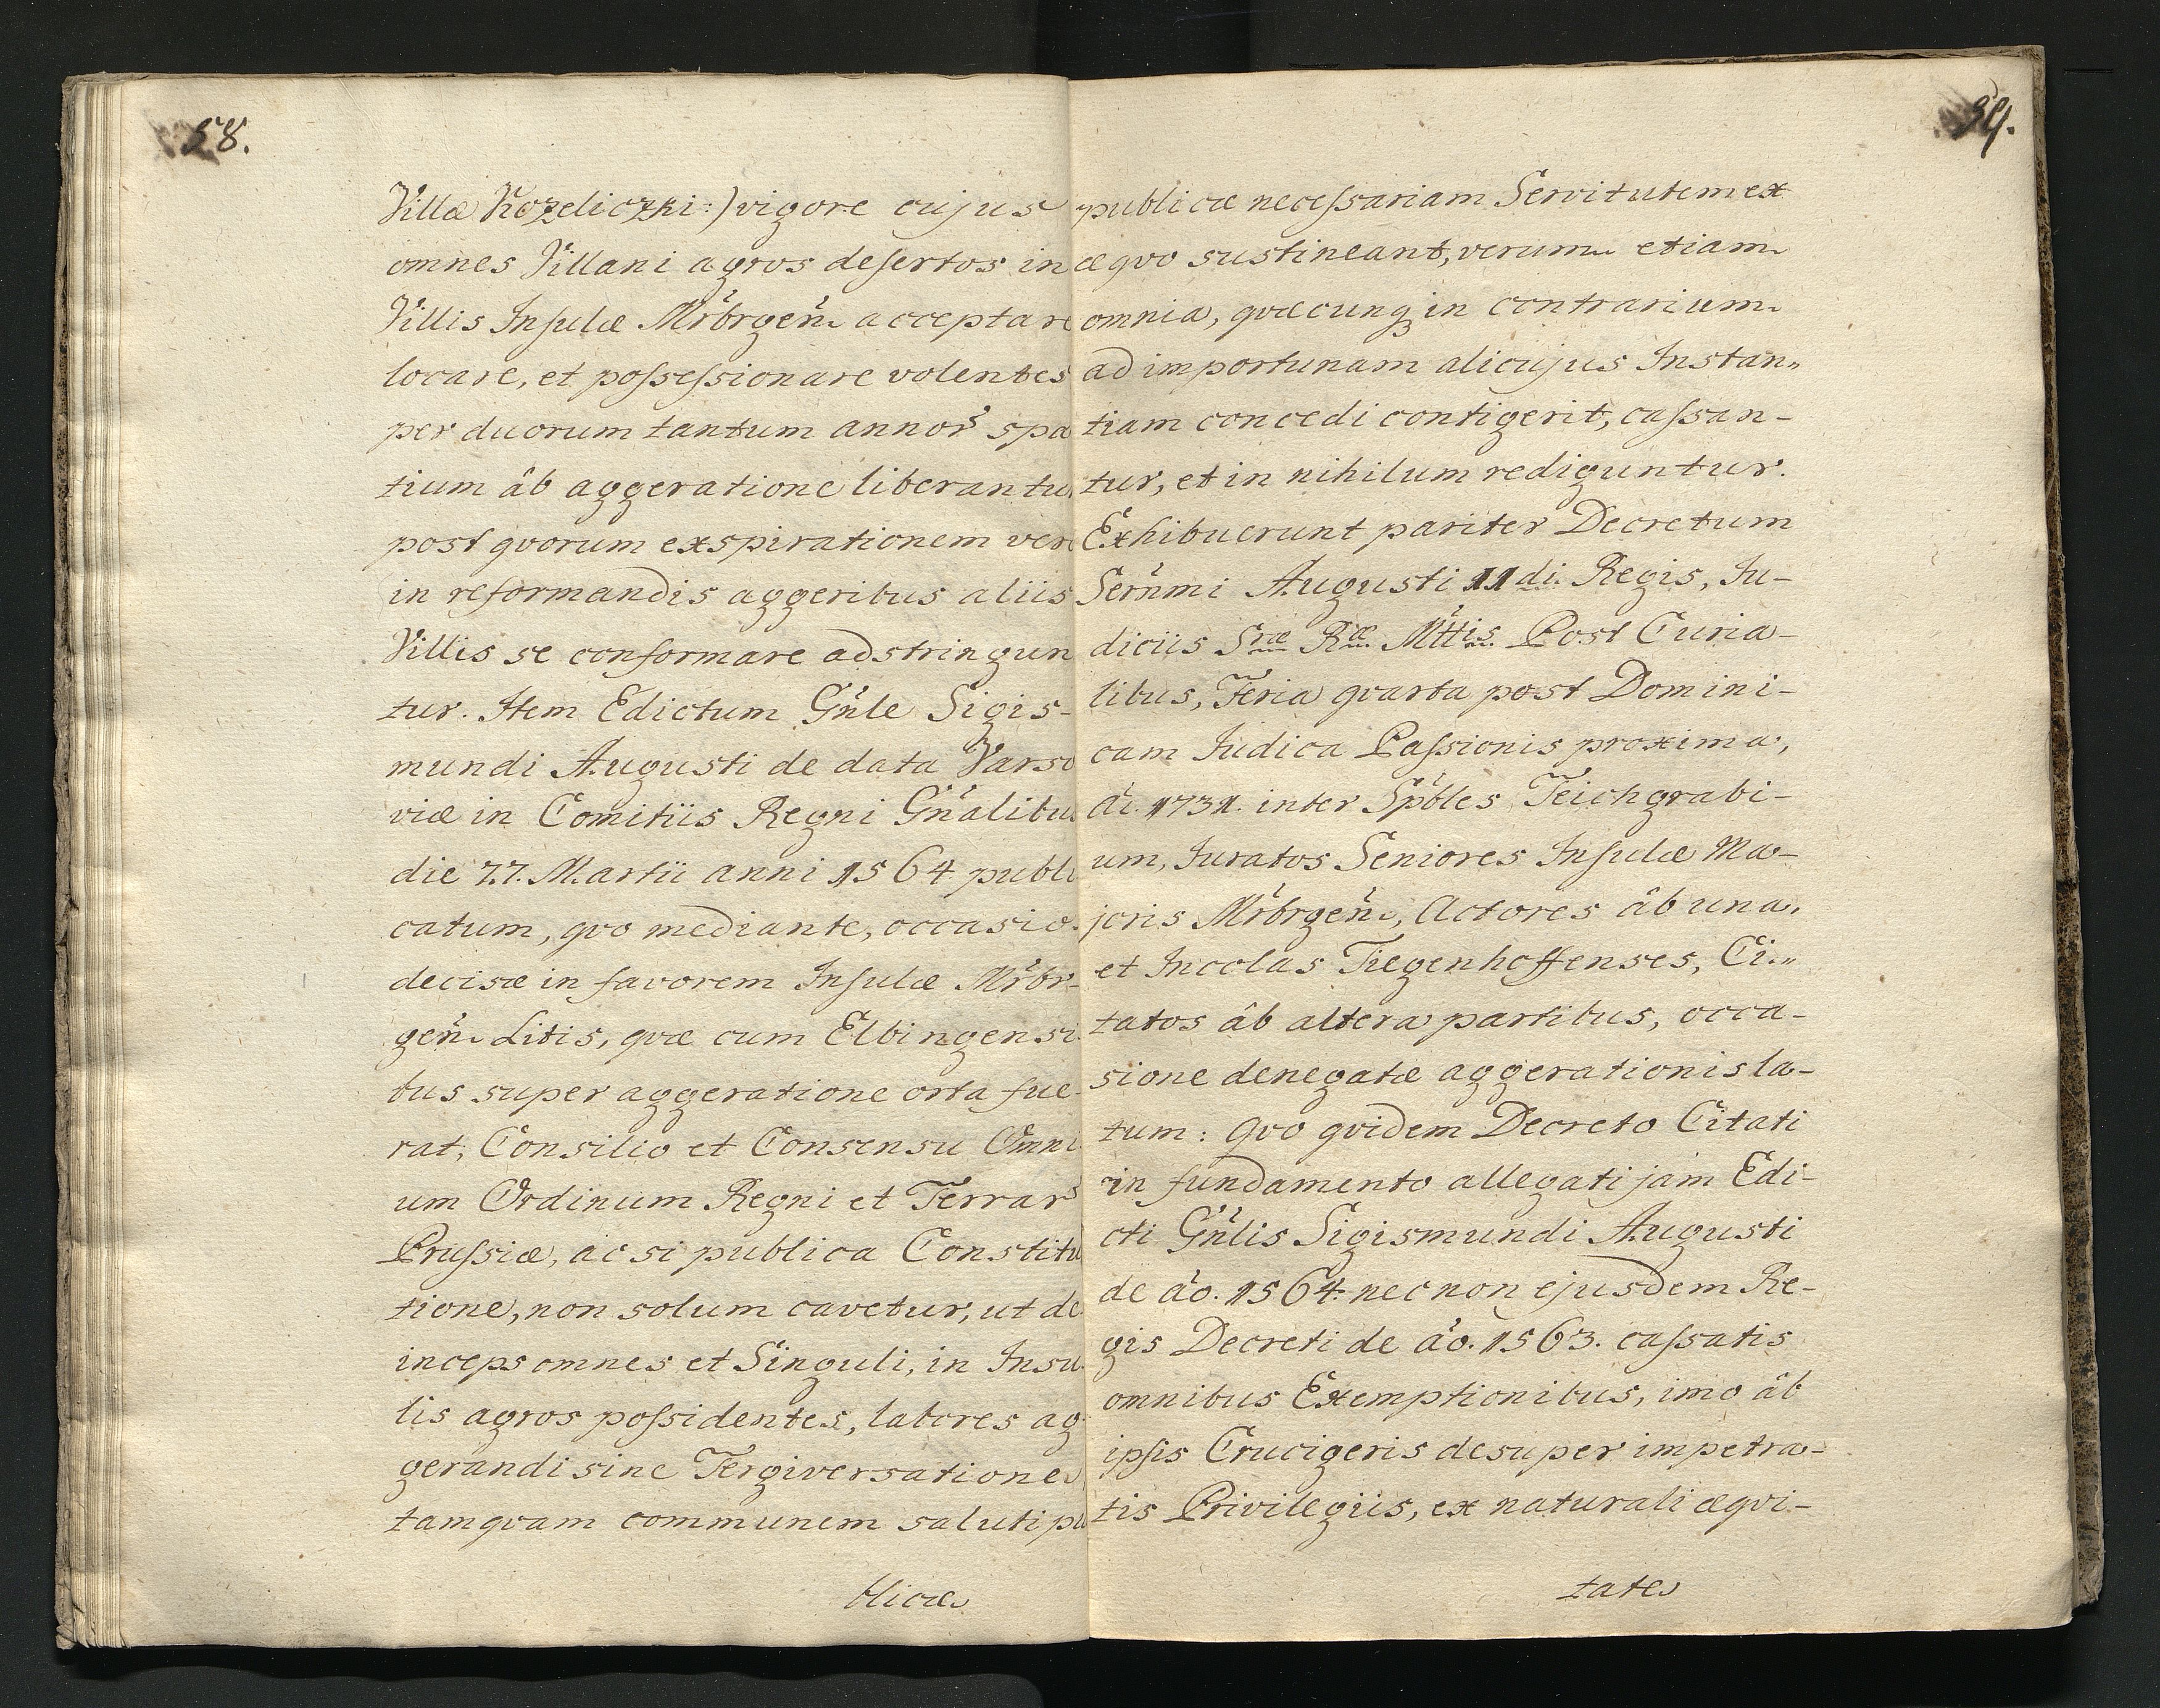 58.
Villæ Kozeliczki:) vigore cujus
omnes Villani agros desertos in
Villis Insulæ Mrbrgen acceptare
locare, et possessionare volentes
per duorum tantum annor spa
tium âb aggeratione liberantu
post qvorum exspirationem ver
in reformandis aggeribus aliis
Villis se conformare adstringun
tur. Item Edictum Gnle Sigis-
mundi Augusti de data Varso
viæ in Comitiis Regni Gnalibu
die 27. Martii anni 1564 publi
catum, qvo mediante, occasio
decisæ in favorem Insulæ Mrbr-
gen Litis, qvæ cum Elbingensi
bus super aggeratione orta fue-
rat, Consilio et Consensu Omni
um Ordinum Regni et Terrar
Prussiæ, ac si publica Constitu
tione, non solum cavetur, ut de
inceps omnes et Singuli, in Insu
lis agros possidentes, labores ag
gerandi sine Tergiversatione
tamqvam communem saluti pu
blicæ
59.
publicæ necessariam Servitutem ex
æqvo sustineant, verum etiam
omnia, qvæcunq in contrarium
ad importunam alicujus Instan„
tiam concedi contigerit, cassan-
tur, et in nihilum rediguntur.
Exhibuerunt pariter Decretum
Sernmi Augusti IIdi Regis, Iu-
diciis Sræ Ræ Mttis Post Curia-
libus, Feria qvarta post Domini-
cam Iudica Passionis proxima,
ai. 1731. inter Spbles Teichgrabi-
um, Iuratos Seniores Insulæ Ma-
joris Mrbrgen, Actores âb una,
et Incolas Tiegenhoffenses, Ci„
tatos âb altera partibus, occa-
sione denegatæ aggerationis la-
tum: qvo qvidem Decreto Citati
in fundamento allegati jam Edi-
cti Gnlis Sigismundi Augusti
de ao. 1564. nec non ejusdem Re-
gis Decreti de ao. 1563. cassatis
omnibus Exemptionibus, imo âb
ipsis Crucigeris desuper impetra-
tis Privilegiis, ex naturali æqvi-
tate